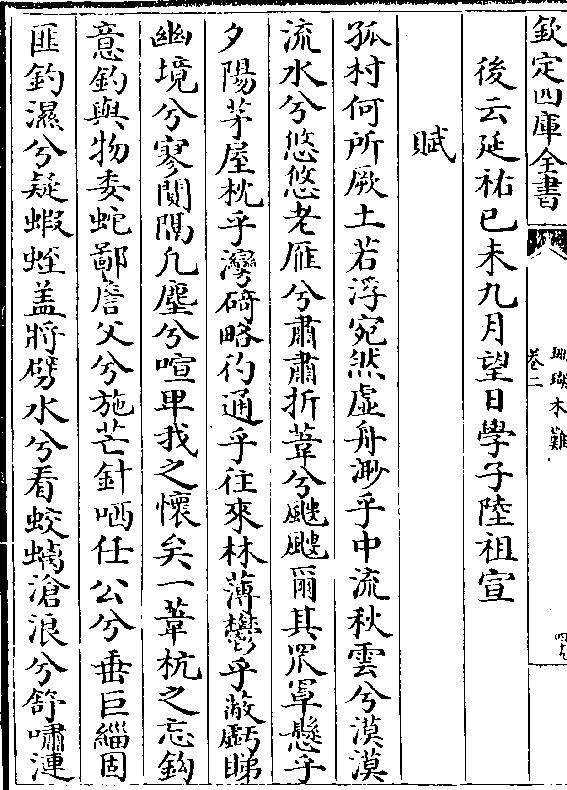 欽定四庫全書
珊瑚木難
卷二
後云延祐已未九月望日學子陸祖宣
賦
孤村何所厥土若浮宛然虚舟渺乎中流秋雲兮漠漠
流水兮悠悠老雁兮肅肅折葦兮颼颼爾其罛罩懸乎
夕陽茅屋枕乎灣碕略彴通乎往來林薄鬱乎蔽虧睇
幽境兮寥閴隔凡塵兮喧卑我之懷矣一葦杭之忘鈎
意釣與物委蛇鄙詹父兮施芒針哂任公兮垂巨緇固
匪釣濕兮疑蝦蛭盖將劈水兮看蛟螭滄浪兮舒嘯漣